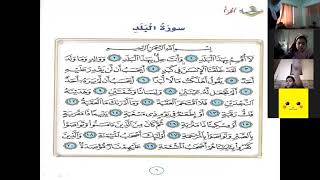 سورة البلد
بِسْمِ اللَّهِ الرَّحْمَٰنِ الرَّحِيمِ
لَا أُقْسِمُ بِهَٰذَا الْبَلَدِ ١ وَأَنْتَ حِلٌّ بِهَٰذَا الْبَلَدِ ٢ وَوَالِدٍ وَمَا وَلَدَ
٣ لَقَدْ خَلَقْنَا الْإِنْسَانَ فِي كَبَدٍ ٤ أَيَحْسَبُ أَنْ لَنْ يَقْدِرَ عَلَيْهِ
أَحَدٌ ٥ يَقُولُ أَهْلَكْتُ مَالًا لُبَدًا ٦ أَيَحْسَبُ أَنْ لَمْ يَرَهُ أَحَدٌ
٧ أَلَمْ نَجْعَلْ لَهُ عَيْنَيْنِ ٨ وَلِسَانًا وَشَفَتَيْنِ ٩ وَهَدَيْنَاهُ
النَّجْدَيْنِ ١٠ فَلَا اقْتَحَمَ الْعَقَبَةَ ١١ وَمَا أَدْرَاكَ مَا الْعَقَبَةُ
١٢ فَكُّ رَقَبَةٍ ١٣ أَوْ إِطْعَامٌ فِي يَوْمٍ ذِي مَسْغَبَةٍ ١٤ يَتِيمًا ذَا مَقْرَبَةٍ
١٥ أَوْ مِسْكِينًا ذَا مَتْرَبَةٍ ١٦ ثُمَّ كَانَ مِنَ الَّذِينَ آمَنُوا وَتَوَاصَوْا
بِالصَّبْرِ وَتَوَاصَوْا بِالْمَرْحَمَةِ ١٧ أُولَٰئِكَ أَصْحَابُ الْمَيْمَنَةِ ١٨ وَالَّذِينَ
كَفَرُوا بِآيَاتِنَا هُمْ أَصْحَابُ الْمَشْأَمَةِ ١٩ عَلَيْهِمْ نَارٌ مُؤْصَدَةٌ ٢٠